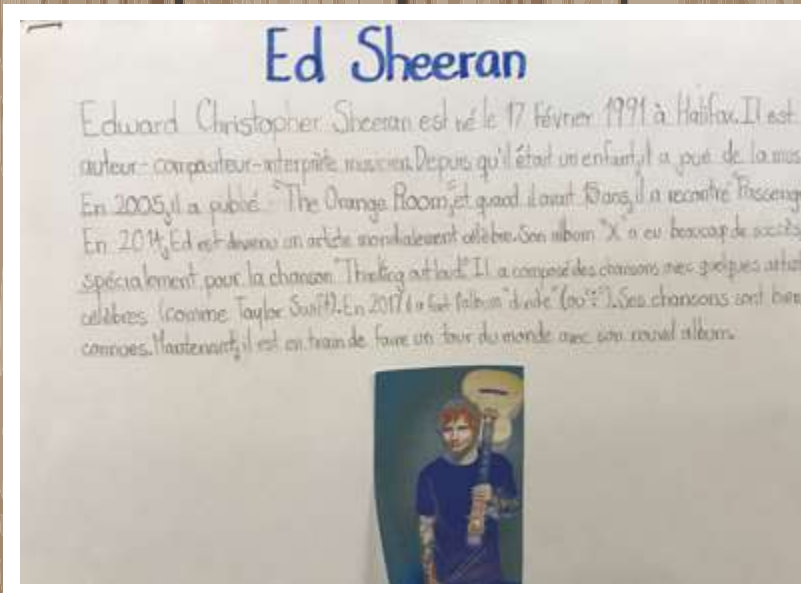 Ed Sheeran
Edward Christopher Sheeran est né le 17 février 1991 à Halifax. Il est
auteur-compositeur-interprète musicien. Depuis qu'il était un enfant, il a joué de la mus
En 2005, il a publié "The Orange Room", et quand il avait 15 ans, il a recontré "Passeng
En 2014, Ed est devenu un artiste mondialement célèbre. Son album "X" a eu beaucoup de succès,
spécialement pour la chanson "Thinking out loud". Il a composé des chansons avec quelques artist
célèbres (comme Taylor Swift). En 2017 il a fait l'album "divide" (ou "÷"). Ses chansons sont bien
connues. Maintenant, il est en train de faire un tour du monde avec son nouvel album.